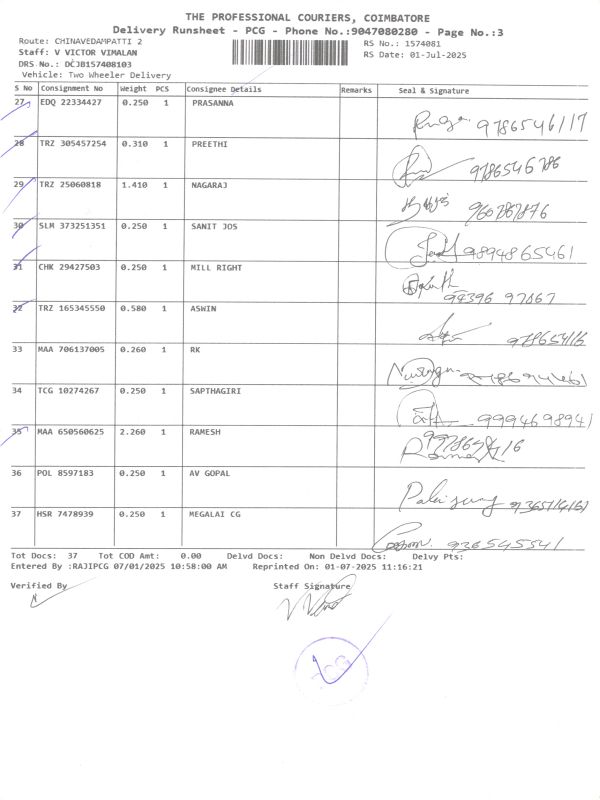 THE PROFESSIONAL COURIERS, COIMBATORE
Delivery Runsheet - PCG - Phone No.:9047080280 - Page No.:3
Route: CHINAVEDAMPATTI 2 RS No.: 1574081
Staff: V VICTOR VIMALAN RS Date: 01-Jul-2025
DRS No.: DCJB157408103
Vehicle: Two Wheeler Delivery
S No Consignment No Weight PCS Consignee Details Remarks Seal & Signature
27 EDQ 22334427 0.250 1 PRASANNA
9786546117
28 TRZ 305457254 0.310 1 PREETHI
9786546786
29 TRZ 25060818 1.410 1 NAGARAJ
9607867876
30 SLM 373251351 0.250 1 SANIT JOS
9894865461
31 CHK 29427503 0.250 1 MILL RIGHT
32 TRZ 165345550 0.580 1 ASWIN
33 MAA 706137005 0.260 1 RK
34 TCG 10274267 0.250 1 SAPTHAGIRI
9994698941
35 MAA 650560625 2.260 1 RAMESH
36 POL 8597183 0.250 1 AV GOPAL
37 HSR 7478939 0.250 1 MEGALAI CG
9365455541
Tot Docs: 37 Tot COD Amt: 0.00 Delvd Docs: Non Delvd Docs: Delvy Pts:
Entered By :RAJIPCG 07/01/2025 10:58:00 AM Reprinted On: 01-07-2025 11:16:21
Verified By Staff Signature
PCG